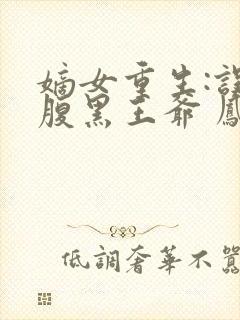 嫡女重生:
腹黑王爺
低調奢華不囂